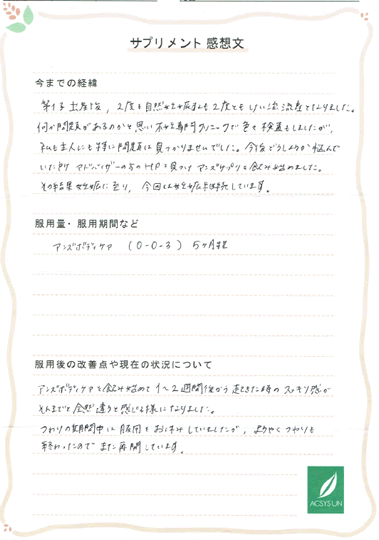 サプリメント 感想文
今までの経緯
第1子出産後、2度も自然妊娠するも2度ともけい流流産となりました。
何か問題があるのかと思い不妊専門クリニックで色々検査もしましたが、
私も主人にも特に問題は見つかりませんでした。今後どうしようか悩んで
いた時アドバイザーの方のHPを見つけアンズサプリを飲み始めました。
その結果妊娠に至り、今回は妊娠継続しています。
服用量・服用期間など
アンズボディケア (0-0-3) 5ヶ月程
服用後の改善点や現在の状況について
アンズボディケアを飲み始めて1〜2週間後から起きた時のスッキリ感が
それまでと全然違うと感じる様になりました。
つわりの期間中は服用をお休みしていましたが、ようやくつわりも
終わったのでまた再開しています。
ACSYSUN